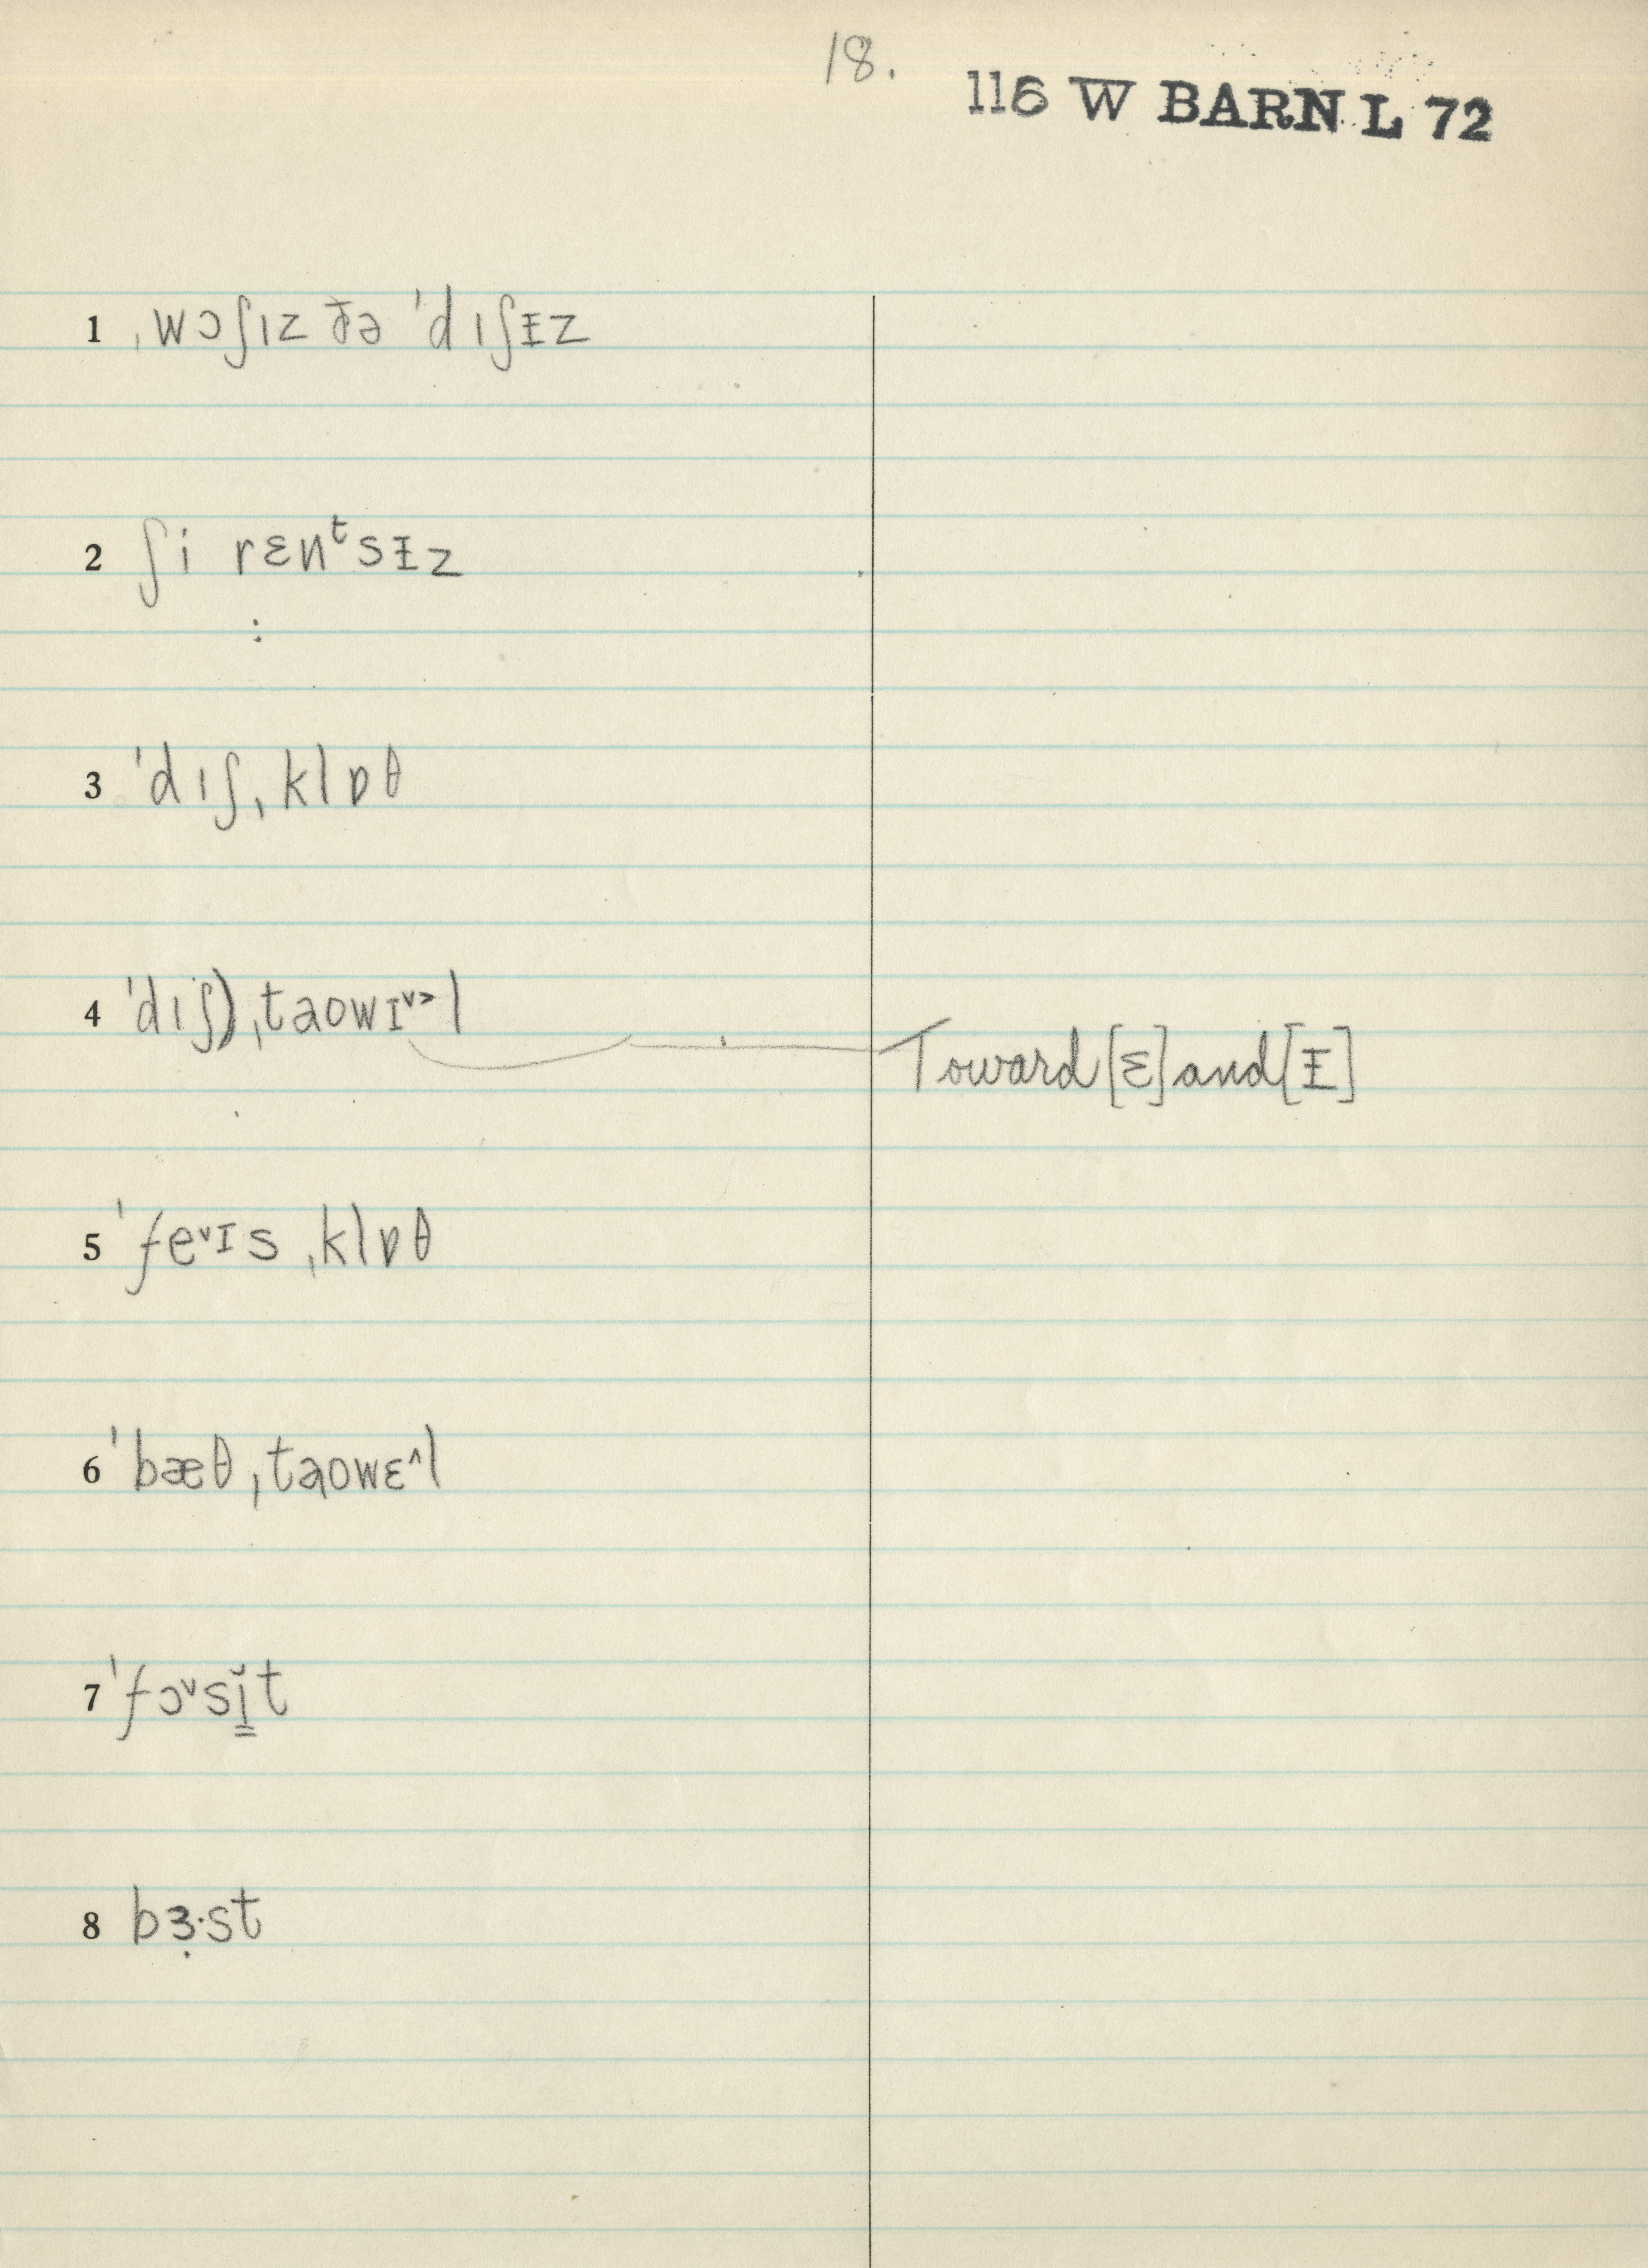 18.
116 W BARN L 72
1 ˌwɔʃɪz ðə ˈdɪʃᵻz
2 ʃi rɛnᵗsᵻz
:
3 ˈdɪʃˌklɒθ
4 ˈdɪʃ)ˌtaowɪ˅˃l
Toward [ɛ] and [ᵻ]
5 ˈfe˅ɪs ˌklɒθ
6 ˈbæθˌtaowɛ˄l
7 ˈfɔ˅sĭ̳t
8 bɜ̣·st